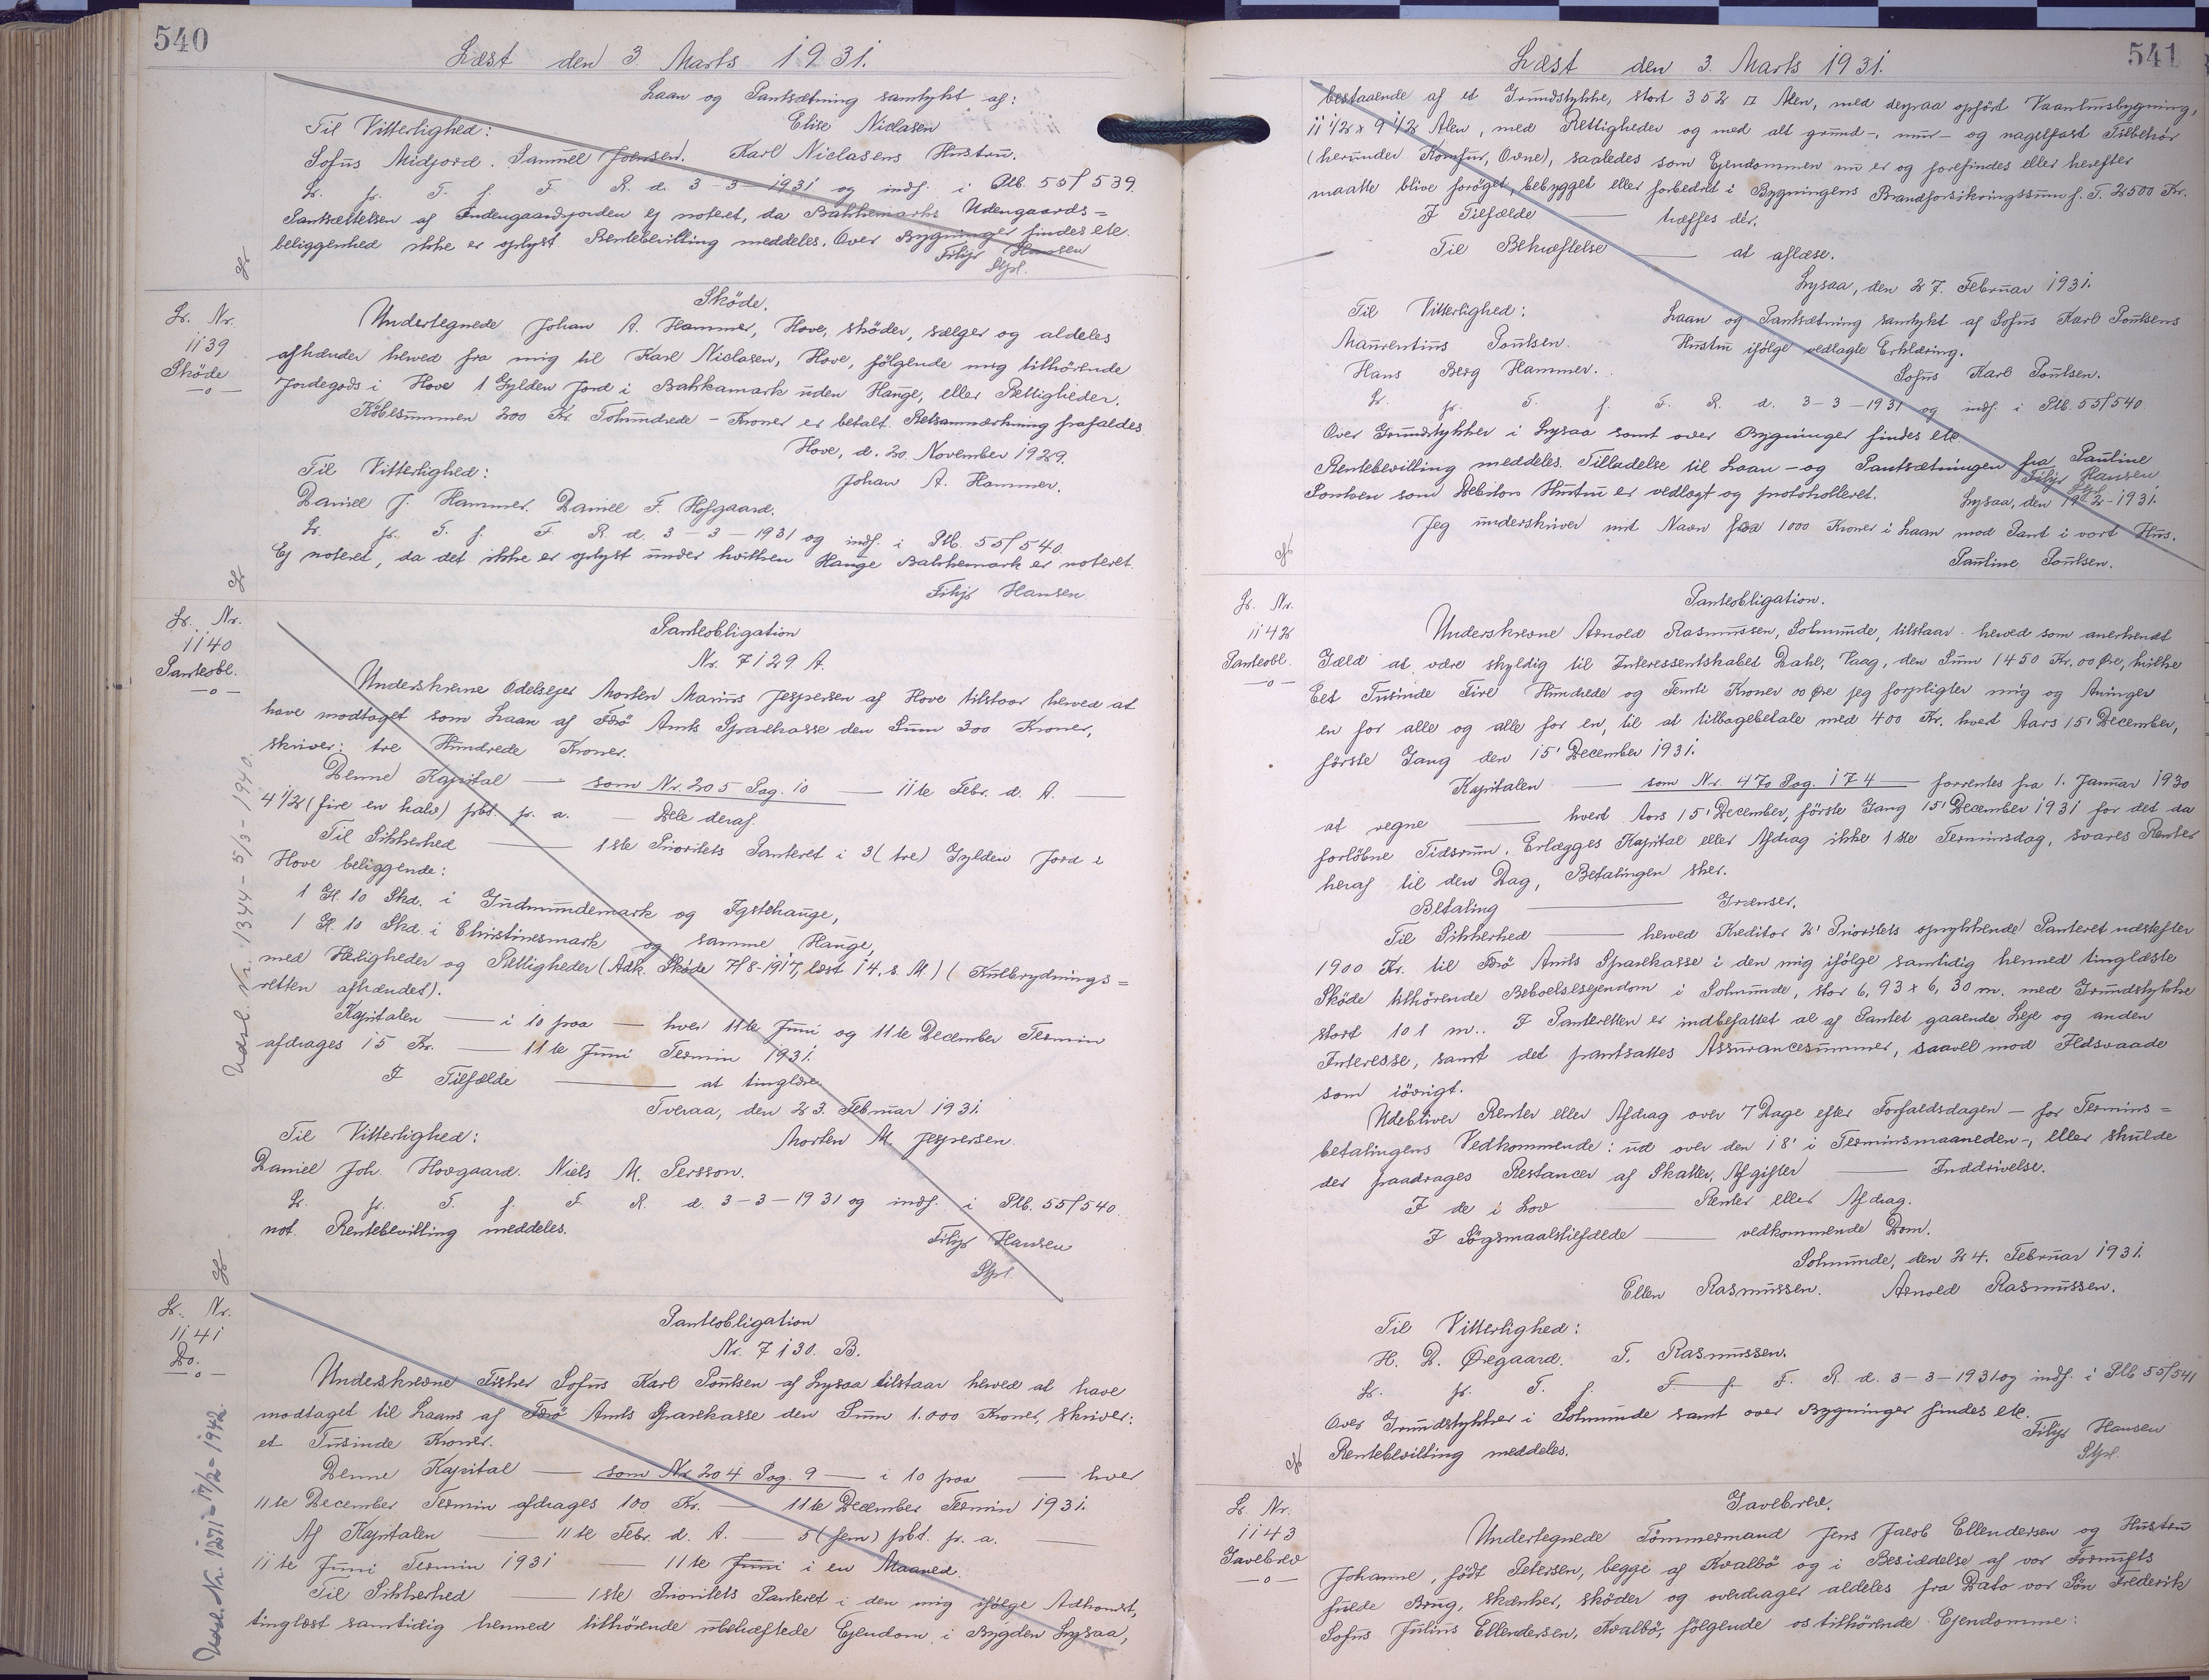 540
Læst den 3. Marts 1931.
Laan og Pantsætning samtykt af:
Til Vitterlighed: Elise Niclasen
Sofus Midjord. Samuel Joensen. Karl Niclasens Hustru.
L. p. T. f. F. R. d. 3-3-1931 og indf. i Plb. 55/539.
Pantsættelsen af Indengaardsjorden ej noteret, da Bakkemarks Udengaards=
beliggenhed ikke er oplyst. Rentebevilling meddeles. Over Bygninger findes etc.
Filip Hansen
Stpl.
L. Nr.
1139
Sköde
—o—
Sköde.
Undertegnede Johan A. Hammer, Hove, sköder, sælger og aldeles
afhænder herved fra mig til Karl Niclasen, Hove, fölgende mig tilhörende
Jordegods i Hove 1 Gylden Jord i Bakkamark uden Hauge, eller Rettigheder.
Köbesummen 200 Kr. Tohundrede - Kroner er betalt. Retsanmærkning frafaldes.
Hove, d. 20. November 1929.
Til Vitterlighed: Johan A. Hammer.
Daniel J. Hammer. Daniel F. Hofgaard.
L. p. T. f. F. R. d. 3-3-1931 og indf. i Plb. 55/540.
Ej noteret, da det ikke er oplyst under hvilken Hauge Bakkemark er noteret.
Filip Hansen
L. Nr.
1140
Panteobl.
—o—
Panteobligation
Nr. 7129 A.
Underskrevne Odelsejer Morten Marius Jespersen af Hove tilstaar herved at
have modtaget som Laan af Færö Amts Sparekasse den Sum 300 Kroner,
skriver: tre Hundrede Kroner.
Denne Kapital — som Nr. 205 Pag. 10 — 11te Febr. d. A. —
4 1/2 (fire en halv) pCt. p. a. — Dele deraf.
Til Sikkerhed — 1ste Prioritets Panteret i 3 (tre) Gylden Jord i
Hove beliggende:
1 Gl. 10 Skd. i Gudmundemark og Igstehauge,
1 Gl. 10 Skd. i Christinesmark og samme Hauge,
med Herligheder og Rettigheder (Adk. Sköde 7/8-1917, læst 14. s. M.) (Kulbrydnings=
retten afhændet).
Kapitalen — i 10 paa — hver 11te Juni og 11te December Termin
afdrages 15 Kr. — 11te Juni Termin 1931.
I Tilfælde — at tinglæse
Tveraa, den 23. Februar 1931.
Til Vitterlighed: Morten M. Jespersen.
Daniel Joh. Hovgaard. Niels M. Persson.
L. p. T. f. F. R. d. 3-3-1931 og indf. i Plb. 55/540.
not. Rentebevilling meddeles.
Filip Hansen
Stpl.
Udsl. Nr. 1344 - 5/3 - 1940.
L. Nr.
1141
Do.
—o—
Panteobligation
Nr. 7130. B.
Underskrevne Fisker Sofus Karl Poulsen af Lysaa tilstaar herved at have
modtaget til Laans af Færö Amts Sparekasse den Sum 1.000 Kroner, skriver:
et Tusinde Kroner.
Denne Kapital — som Nr. 204 Pag. 9 — i 10 paa — hver
11te December Termin afdrages 100 Kr. — 11te December Termin 1931.
Af Kapitalen — 11te Febr. d. A. — 5 (fem) pCt. p. a. —
11te Juni Termin 1931 — 11te Juni i en Maaned.
Til Sikkerhed — 1ste Prioritets Panteret i den mig ifølge Adkomst,
tinglæst samtidig hermed tilhörende ubehæftede Ejendom i Bygden Lysaa,
Udsl. Nr. 1271 - 17/2 - 1942.
541
Læst den 3. Marts 1931.
bestaaende af et Grundstykke, stort 352 □ Alen, med derpaa opfört Vaaningsbygning,
11 1/2 x 9 1/2 Alen, med Rettigheder og med alt grund-, mur- og nagelfast Tilbehör
(herunder Komfur, Ovne), saaledes som Ejendommen nu er og forefindes eller herefter
maatte blive foröget, bebygget eller forbedret i Bygningens Brandforsikringssum f. T. 2500 Kr.
I Tilfælde — træffes dér.
Til Bekræftelse — at aflæse.
Lysaa, den 27. Februar 1931.
Til Vitterlighed: Laan og Pantsætning samtykt af Sofus Karl Poulsens
Maurentius Poulsen. Hustru ifölge vedlagte Erklæring.
Hans Berg Hammer. Sofus Karl Poulsen.
L. p. T. f. F. R. d. 3-3-1931 og indf. i Plb. 55/540.
Over Grundstykker i Lysaa samt over Bygninger findes etc.
Rentebevilling meddeles. Tilladelse til Laan- og Pantsætningen fra Pauline
Poulsen som Debitors Hustru er vedlagt og protokolleret. Filip Hansen
Stpl.
Lysaa, den 19-2-1931.
Jeg underskriver mit Navn for 1000 Kroner i Laan mod Pant i vort Hus.
Pauline Poulsen.
L. Nr.
1142
Panteobl.
—o—
Panteobligation.
Underskrevne Arnold Rasmussen, Solmunde, tilstaar herved som anerkendt
Gæld at være skyldig til Interessentskabet Dahl, Vaag, den Sum 1450 Kr. 00 Øre, hvilke
Eet Tusinde Fire Hundrede og Femti Kroner 00 Øre jeg forpligter mig og Arvinger
en for alle og alle for en, til at tilbagebetale med 400 Kr. hvert Aars 15' December,
förste Gang den 15' December 1931.
Kapitalen — som Nr. 470 Pag. 174 — forrentes fra 1. Januar 1930
at regne — hvert Aars 15' December, förste Gang 15' December 1931 for det da
forlöbne Tidsrum. Erlægges Kapital eller Afdrag ikke 1ste Terminsdag, svares Renter
heraf til den Dag, Betalingen sker.
Betaling — Grænser.
Til Sikkerhed — herved Kreditor 2' Prioritets oprykkende Panteret næstefter
1900 Kr. til Færö Amts Sparekasse i den mig ifölge samtidig hermed tinglæste
Sköde tilhörende Beboelsesejendom i Solmunde, stor 6,93 x 6,30 m. med Grundstykke
stort 101 m.. I Panteretten er indbefattet al af Pantet gaaende Leje og anden
Interesse, samt det pantsattes Assurancesummer, saavel mod Ildsvaade
som iövrigt.
Udebliver Renter eller Afdrag over 7 Dage efter Forfaldsdagen - for Termins=
betalingens Vedkommende: ud over den 18' i Terminsmaaneden -, eller skulde
der paadrages Restancer af Skatter, Afgifter — Inddrivelse.
I de i Lov — Renter eller Afdrag.
I Sögsmaalstilfælde — vedkommende Dom.
Solmunde, den 24. Februar 1931.
Ellen Rasmussen. Arnold Rasmussen.
Til Vitterlighed:
H. D. Øregaard. T. Rasmussen.
L. p. T. f. F. f. F. R. d. 3-3-1931 og indf. i Plb 55/541
Over Grundstykker i Solmunde samt over Bygninger findes etc.
Rentebevilling meddeles. Filip Hansen
Stpl.
L. Nr.
1143
Gavebrev
—o—
Gavebrev.
Undertegnede Tömmermand Jens Jacob Ellendersen og Hustru
Johanne, födt Petersen, begge af Kvalbö og i Besiddelse af vor Fornufts
fulde Brug, skænker, sköder og overdrager aldeles fra Dato vor Sön Frederik
Sofus Julius Ellendersen, Kvalbö, fölgende os tilhörende Ejendomme: